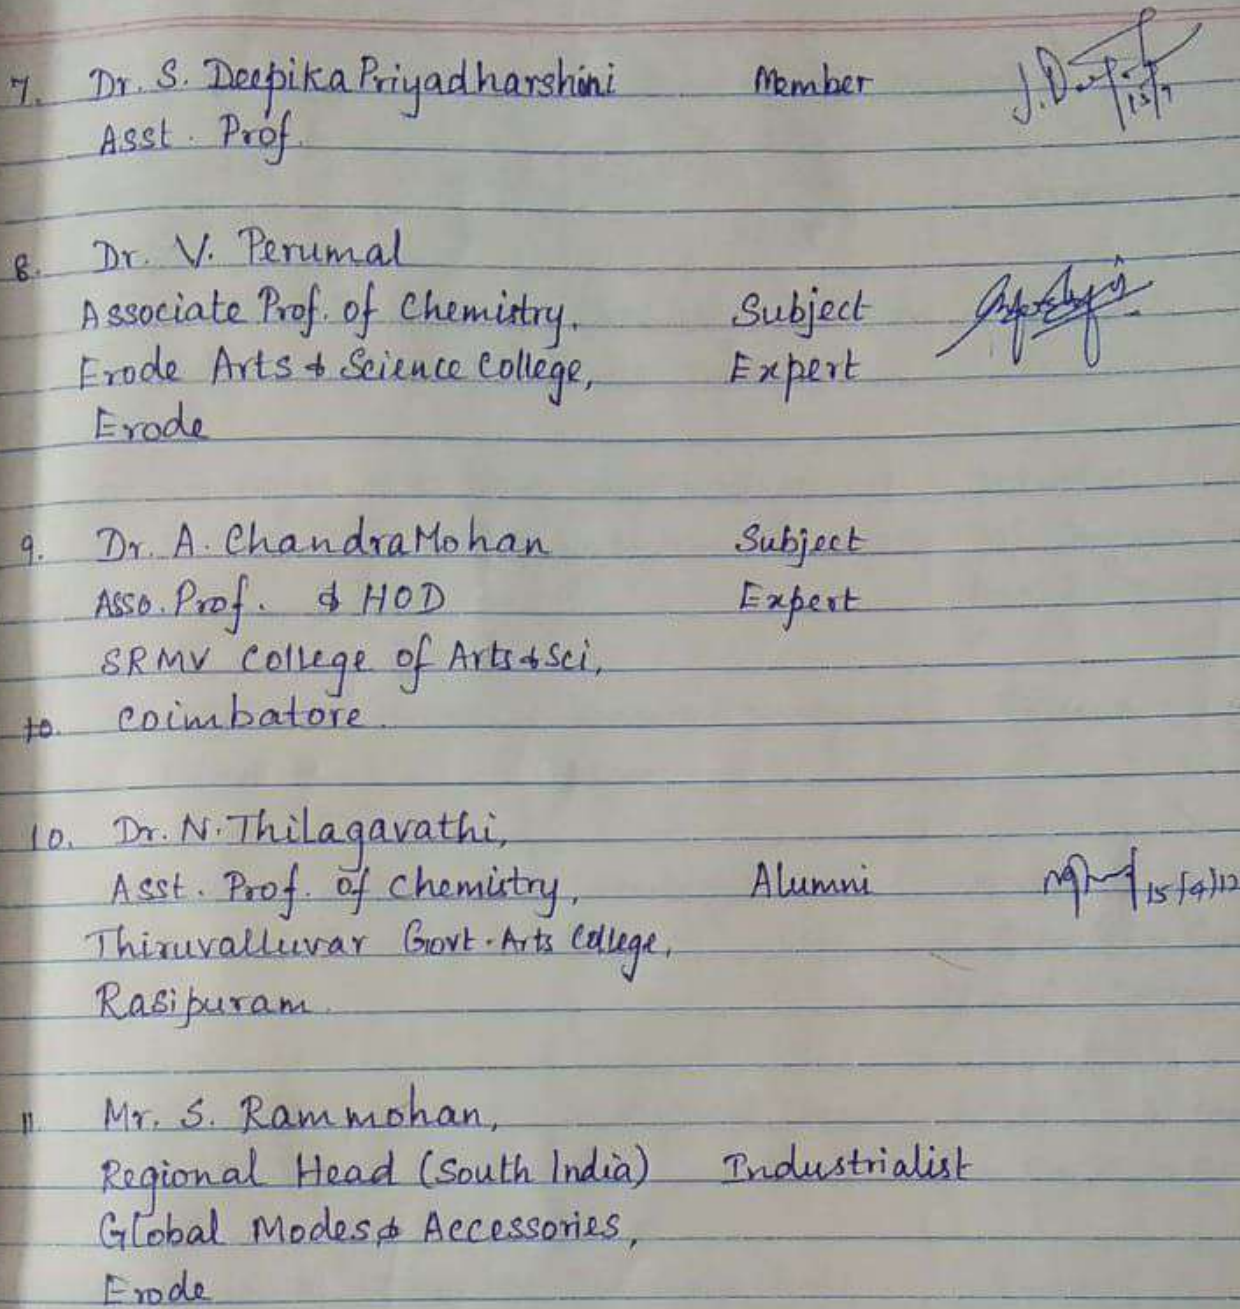 7. Dr. S. Deepika Priyadharshini Member
Asst. Prof.
8. Dr. V. Perumal
Associate Prof. of Chemistry, Subject
Erode Arts & Science College, Expert
Erode
9. Dr. A. ChandraMohan Subject
Asso. Prof. & HOD Expert
SRMV College of Arts & Sci,
10. Coimbatore.
10. Dr. N. Thilagavathi,
Asst. Prof. of Chemistry, Alumni
Thiruvalluvar Govt. Arts College,
Rasipuram.
11. Mr. S. Rammohan,
Regional Head (South India) Industrialist
Global Modes & Accessories,
Erode